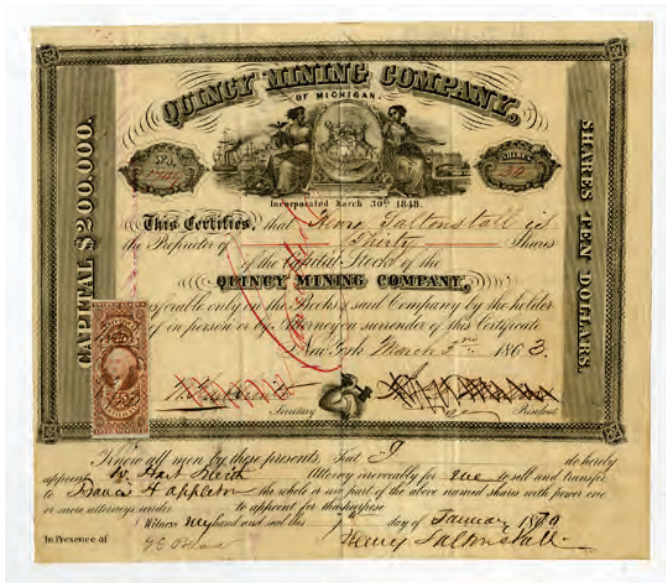 QUINCY MINING COMPANY,
OF MICHIGAN.
No.
SHARES
30
CAPITAL $200.000.
SHARES TEN DOLLARS.
Incorporated March 30th 1848.
This Certifies, that Henry Saltonstall is
the Proprietor of Thirty Shares
of the Capital Stock of the
QUINCY MINING COMPANY,
ferable only on the Books of said Company by the holder
of in person or by Attorney on surrender of this Certificate
New York March 3rd 1863.
Secretary
President
Know all men by these presents, That I do hereby
appoint Hart Smith Attorney irrevocably for me to sell and transfer
to Francis H Appleton the whole or any part of the above named shares with power one
or more attorneys under to appoint for that purpose
Witness my hand and seal this day of January 1870
In Presence of
Henry Saltonstall